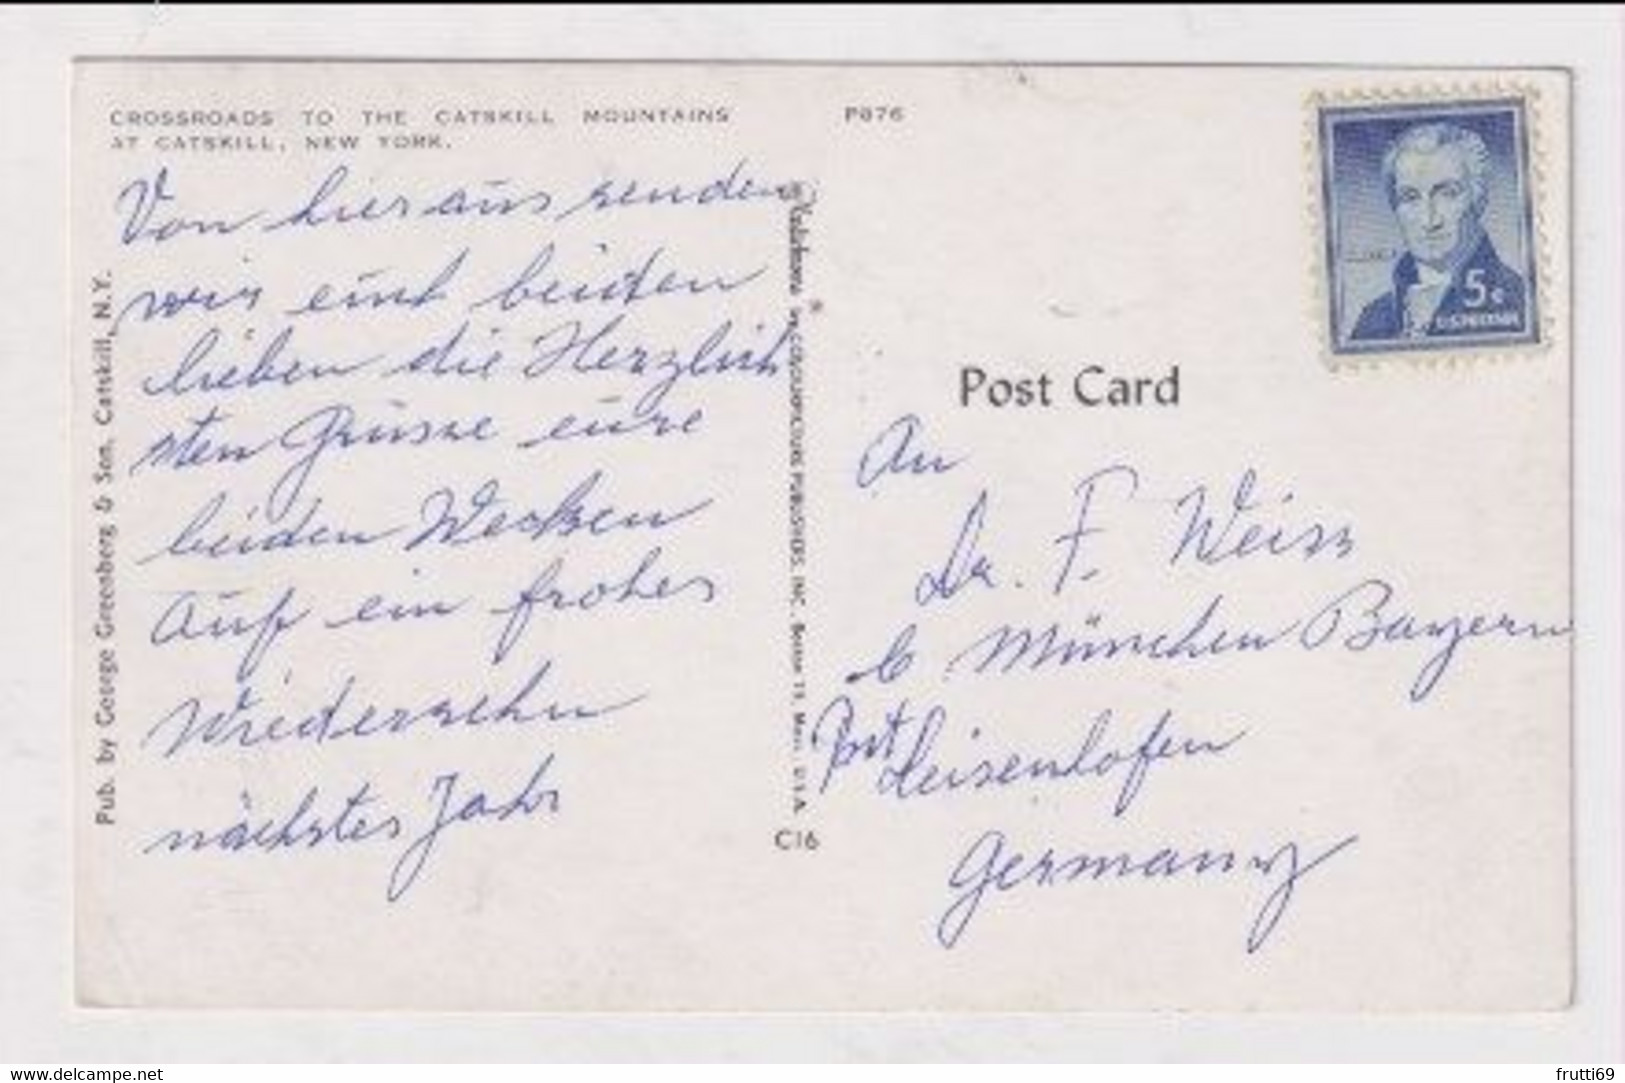 CROSSROADS TO THE CATSKILL MOUNTAINS
AT CATSKILL, NEW YORK.
P876
Von hier aus senden
wir euch beiden
lieben die Herzlich
sten Grüsse eure
beiden
Auf ein frohes
Wiedersehn
nächstes Jahr
Pub. by George Greenberg & Son, Catskill, N.Y.
COLOURPICTURE PUBLISHERS, INC., Boston 15, Mass., U.S.A.
C16
5¢
U.S. POSTAGE
Post Card
An
Dr. F. Weiss
b München Bayern
Post Deisenhofen
Germany
www.delcampe.net
frutti69